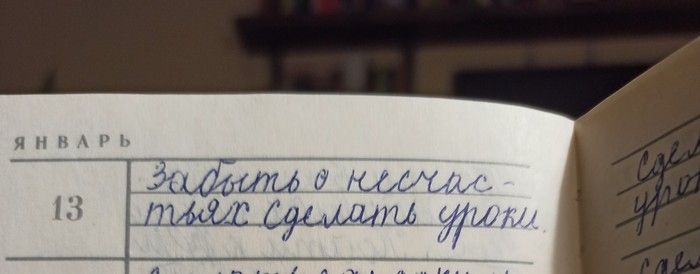 ЯНВАРЬ
13
Забыть о несчас-
тьях сделать уроки.
сдел
уро